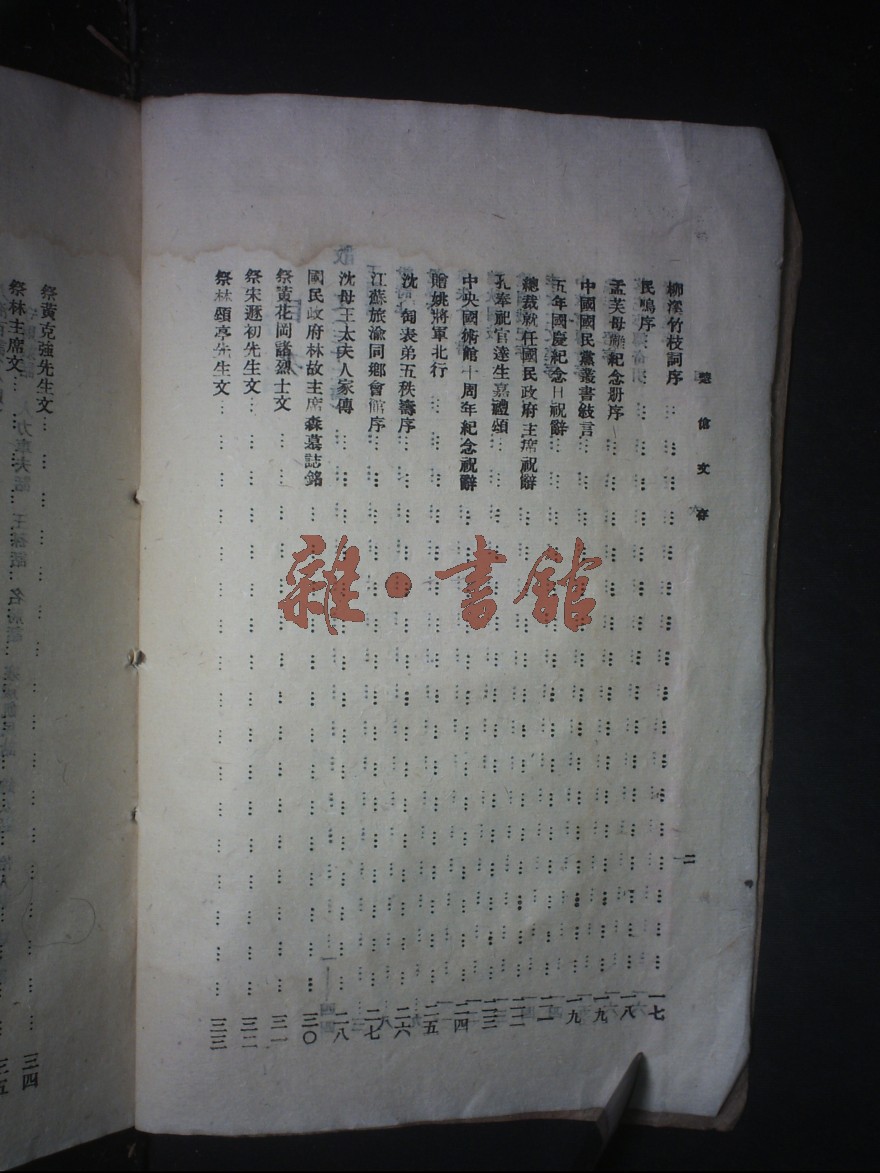 楚傖文存
二
柳溪竹枝詞序 一七
民鳴序 一八
孟芙母難紀念册序 一九
中國國民黨叢書敍言 一九
五年國慶紀念日祝辭 二一
總裁就任國民政府主席祝辭 二二
孔奉祀官達生嘉禮頌 二三
中央國術館十周年紀念祝辭 二四
贈姚將軍北行 二五
沈 御表弟五秩壽序 二六
江蘇旅渝同鄉會館序 二七
沈母王太夫人家傳 二八
國民政府林故主席森墓誌銘 三〇
祭黃花岡諸烈士文 三一
祭宋遯初先生文 三二
祭林頌亭先生文 三三
祭黃克強先生文 三四
祭林主席文 三五
雜·書館